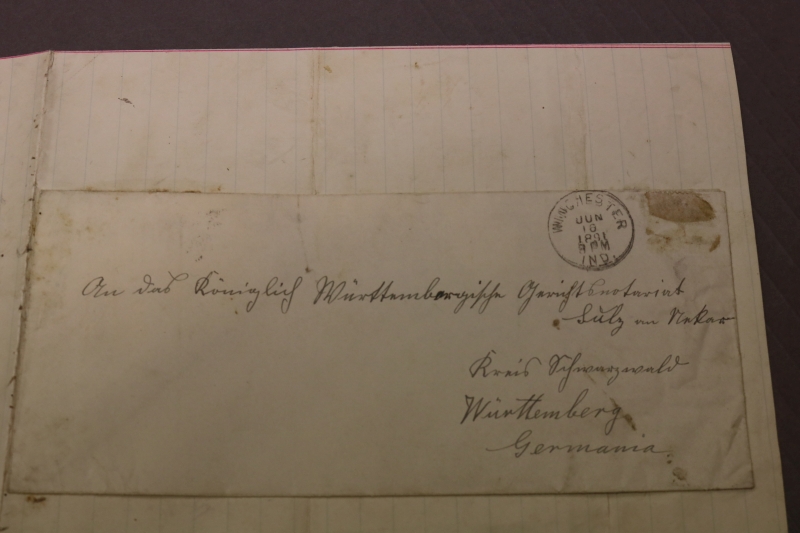 WINCHESTER
JUN
16
1891
8 PM
IND.
An das Königlich Württembergische Gerichtsnotariat
Sulz am Nekar
Kreis Schwarzwald
Württemberg
Germania